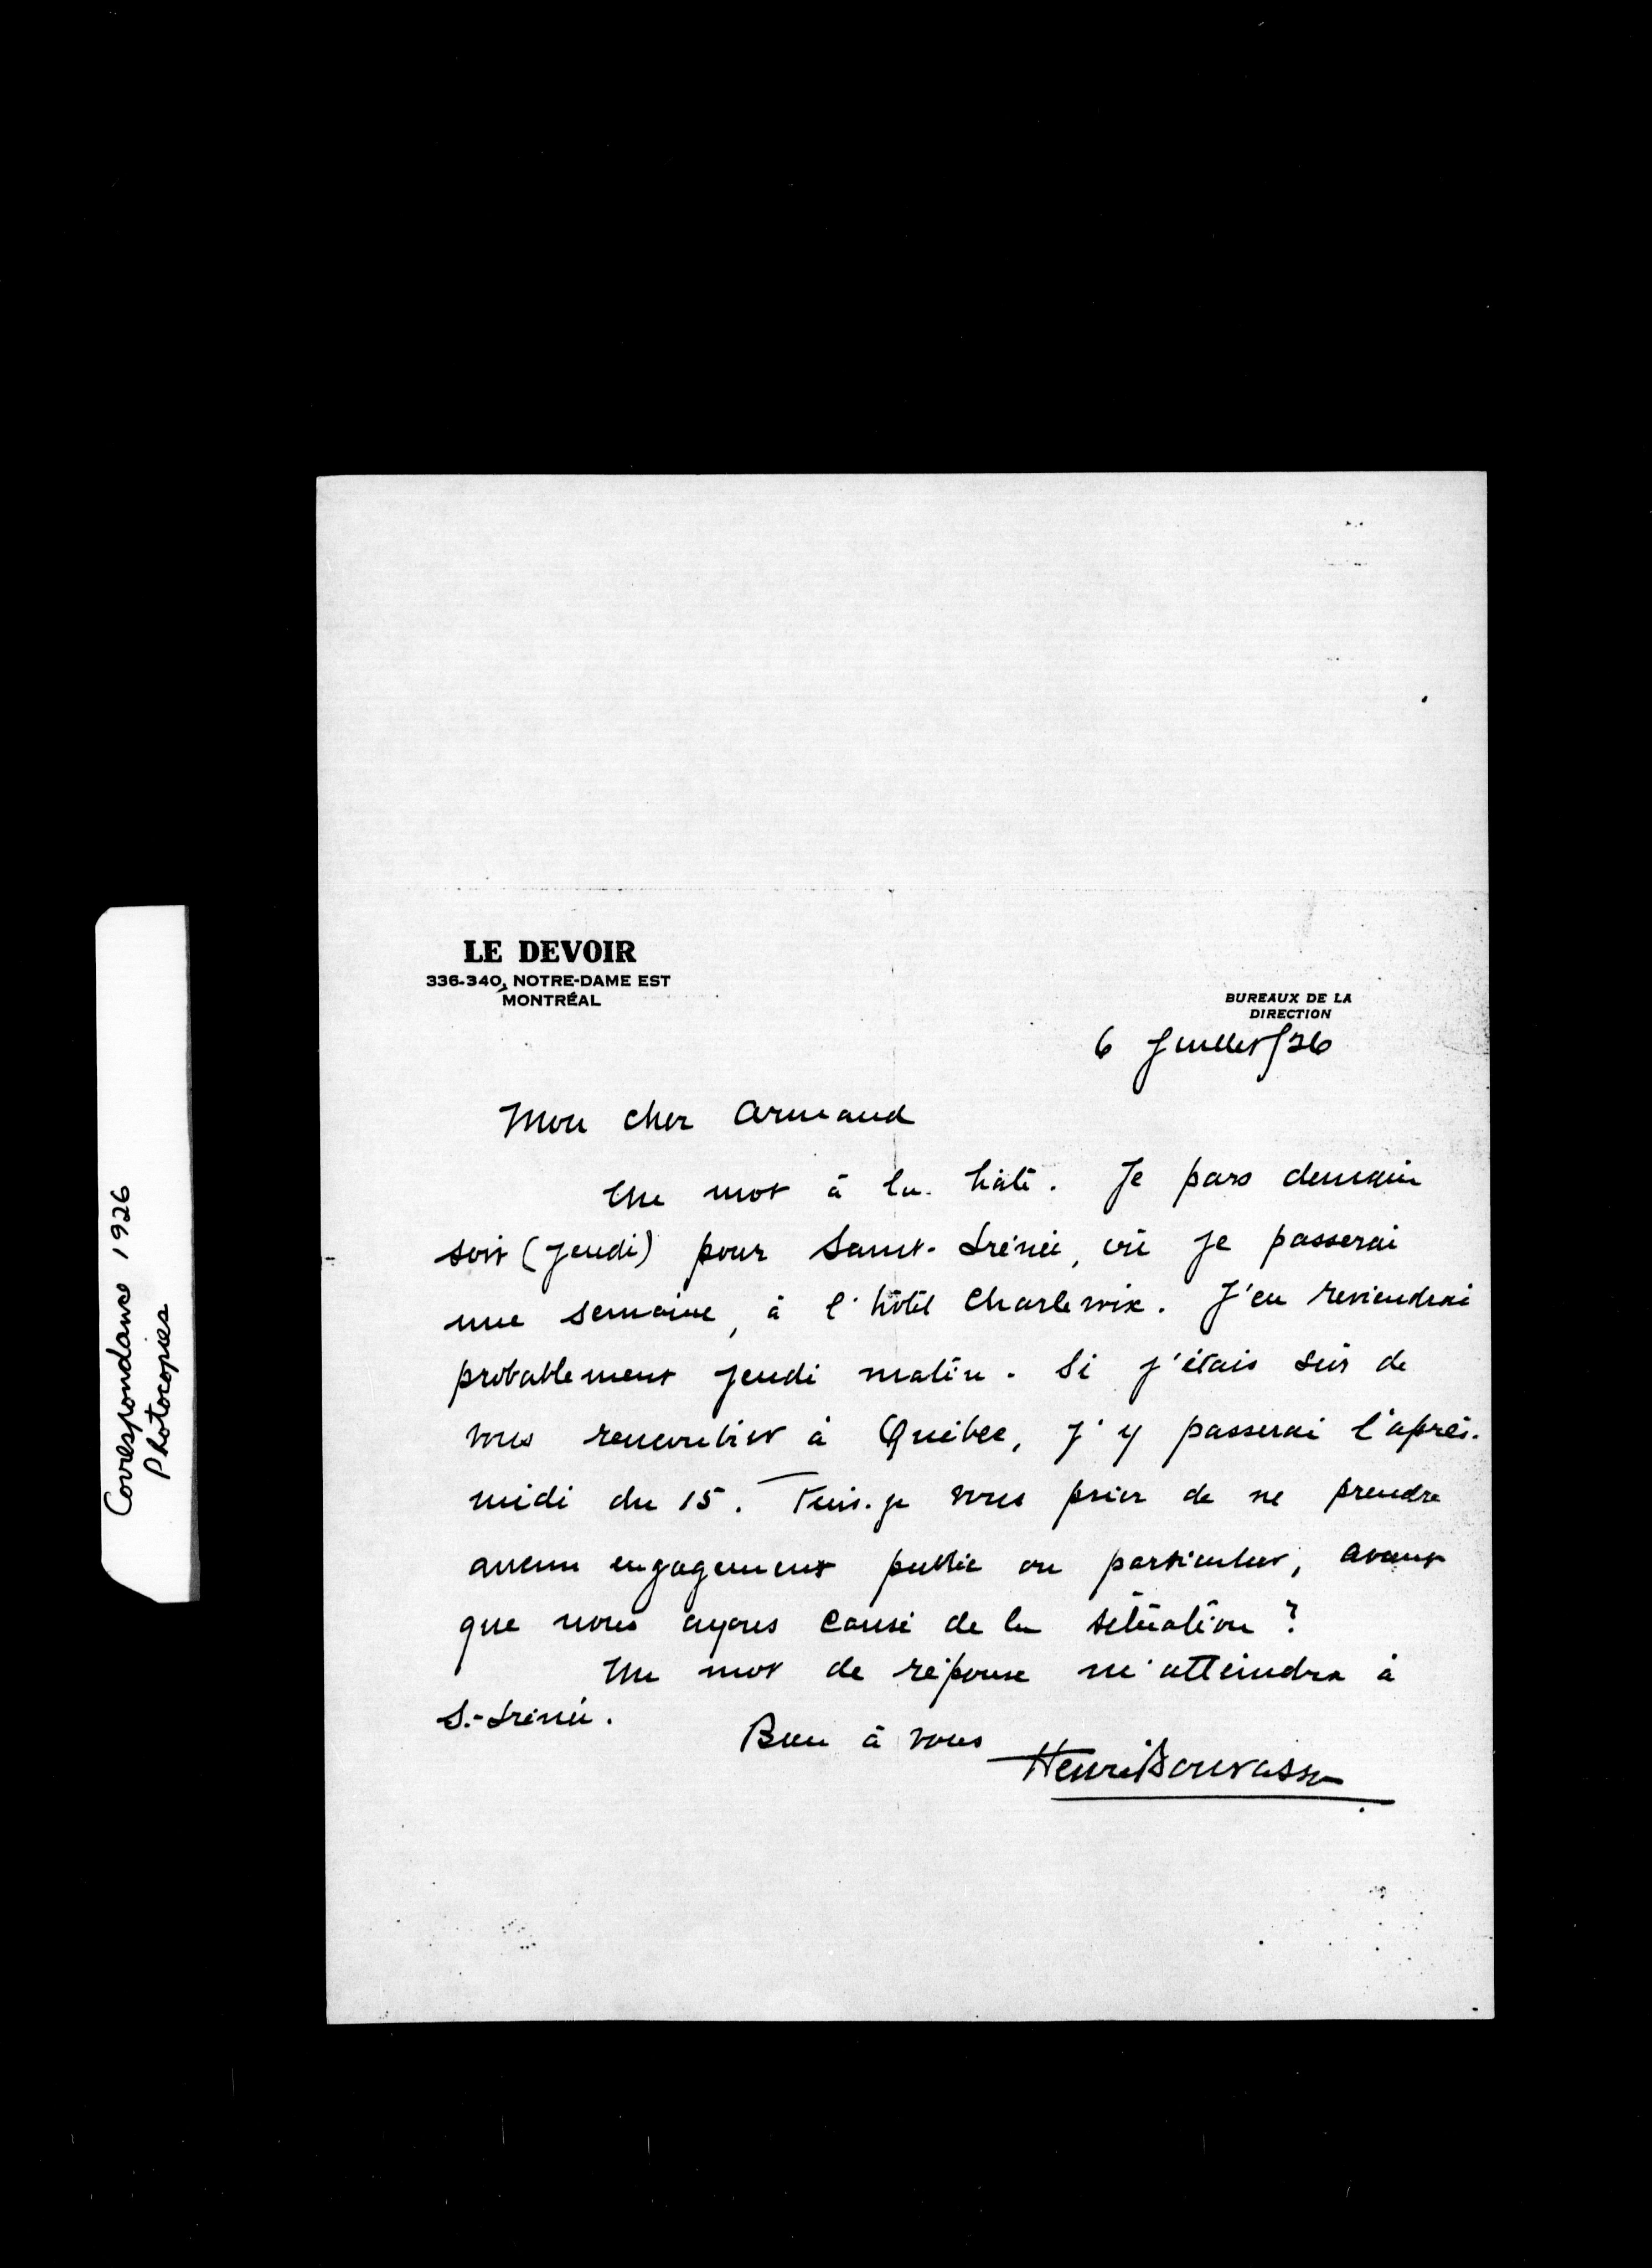 Correspondance 1926
Photocopies
LE DEVOIR
336-340, NOTRE-DAME EST
MONTRÉAL
BUREAUX DE LA
DIRECTION
6 Juillet/26
Mon cher Armand
Un mot à la hâte. Je pars demain
soir (jeudi) pour Saint-Irénée, où je passerai
une semaine, à l'hôtel Charlevoix. J'en reviendrai
probablement jeudi matin. Si j'étais sûr de
vous rencontrer à Québec, j'y passerai l'après-
midi du 15. Puis-je vous prier de ne prendre
aucun engagement public ou particulier, avant
que nous ayons causé de la situation ?
Un mot de réponse m'atteindra à
S.-Irénée.
Bien à vous
Henri Bourassa